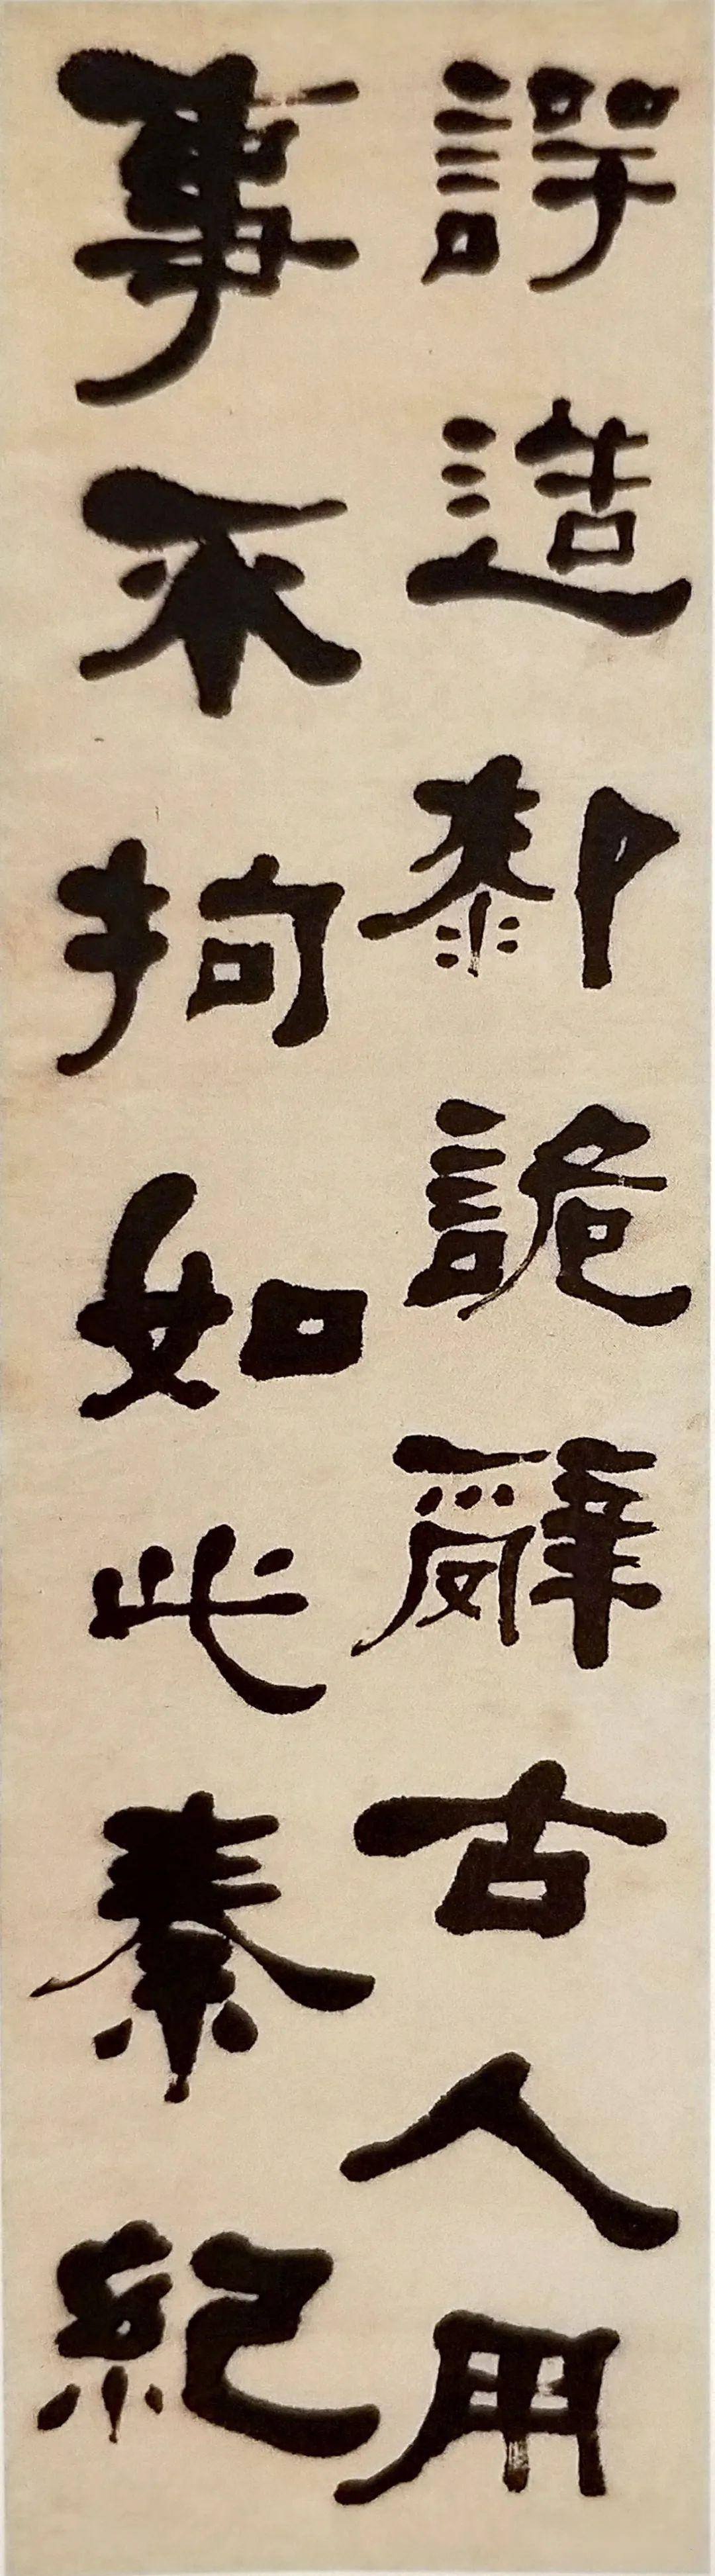 諤造厀詭辭古人用
事不拘如此秦紀